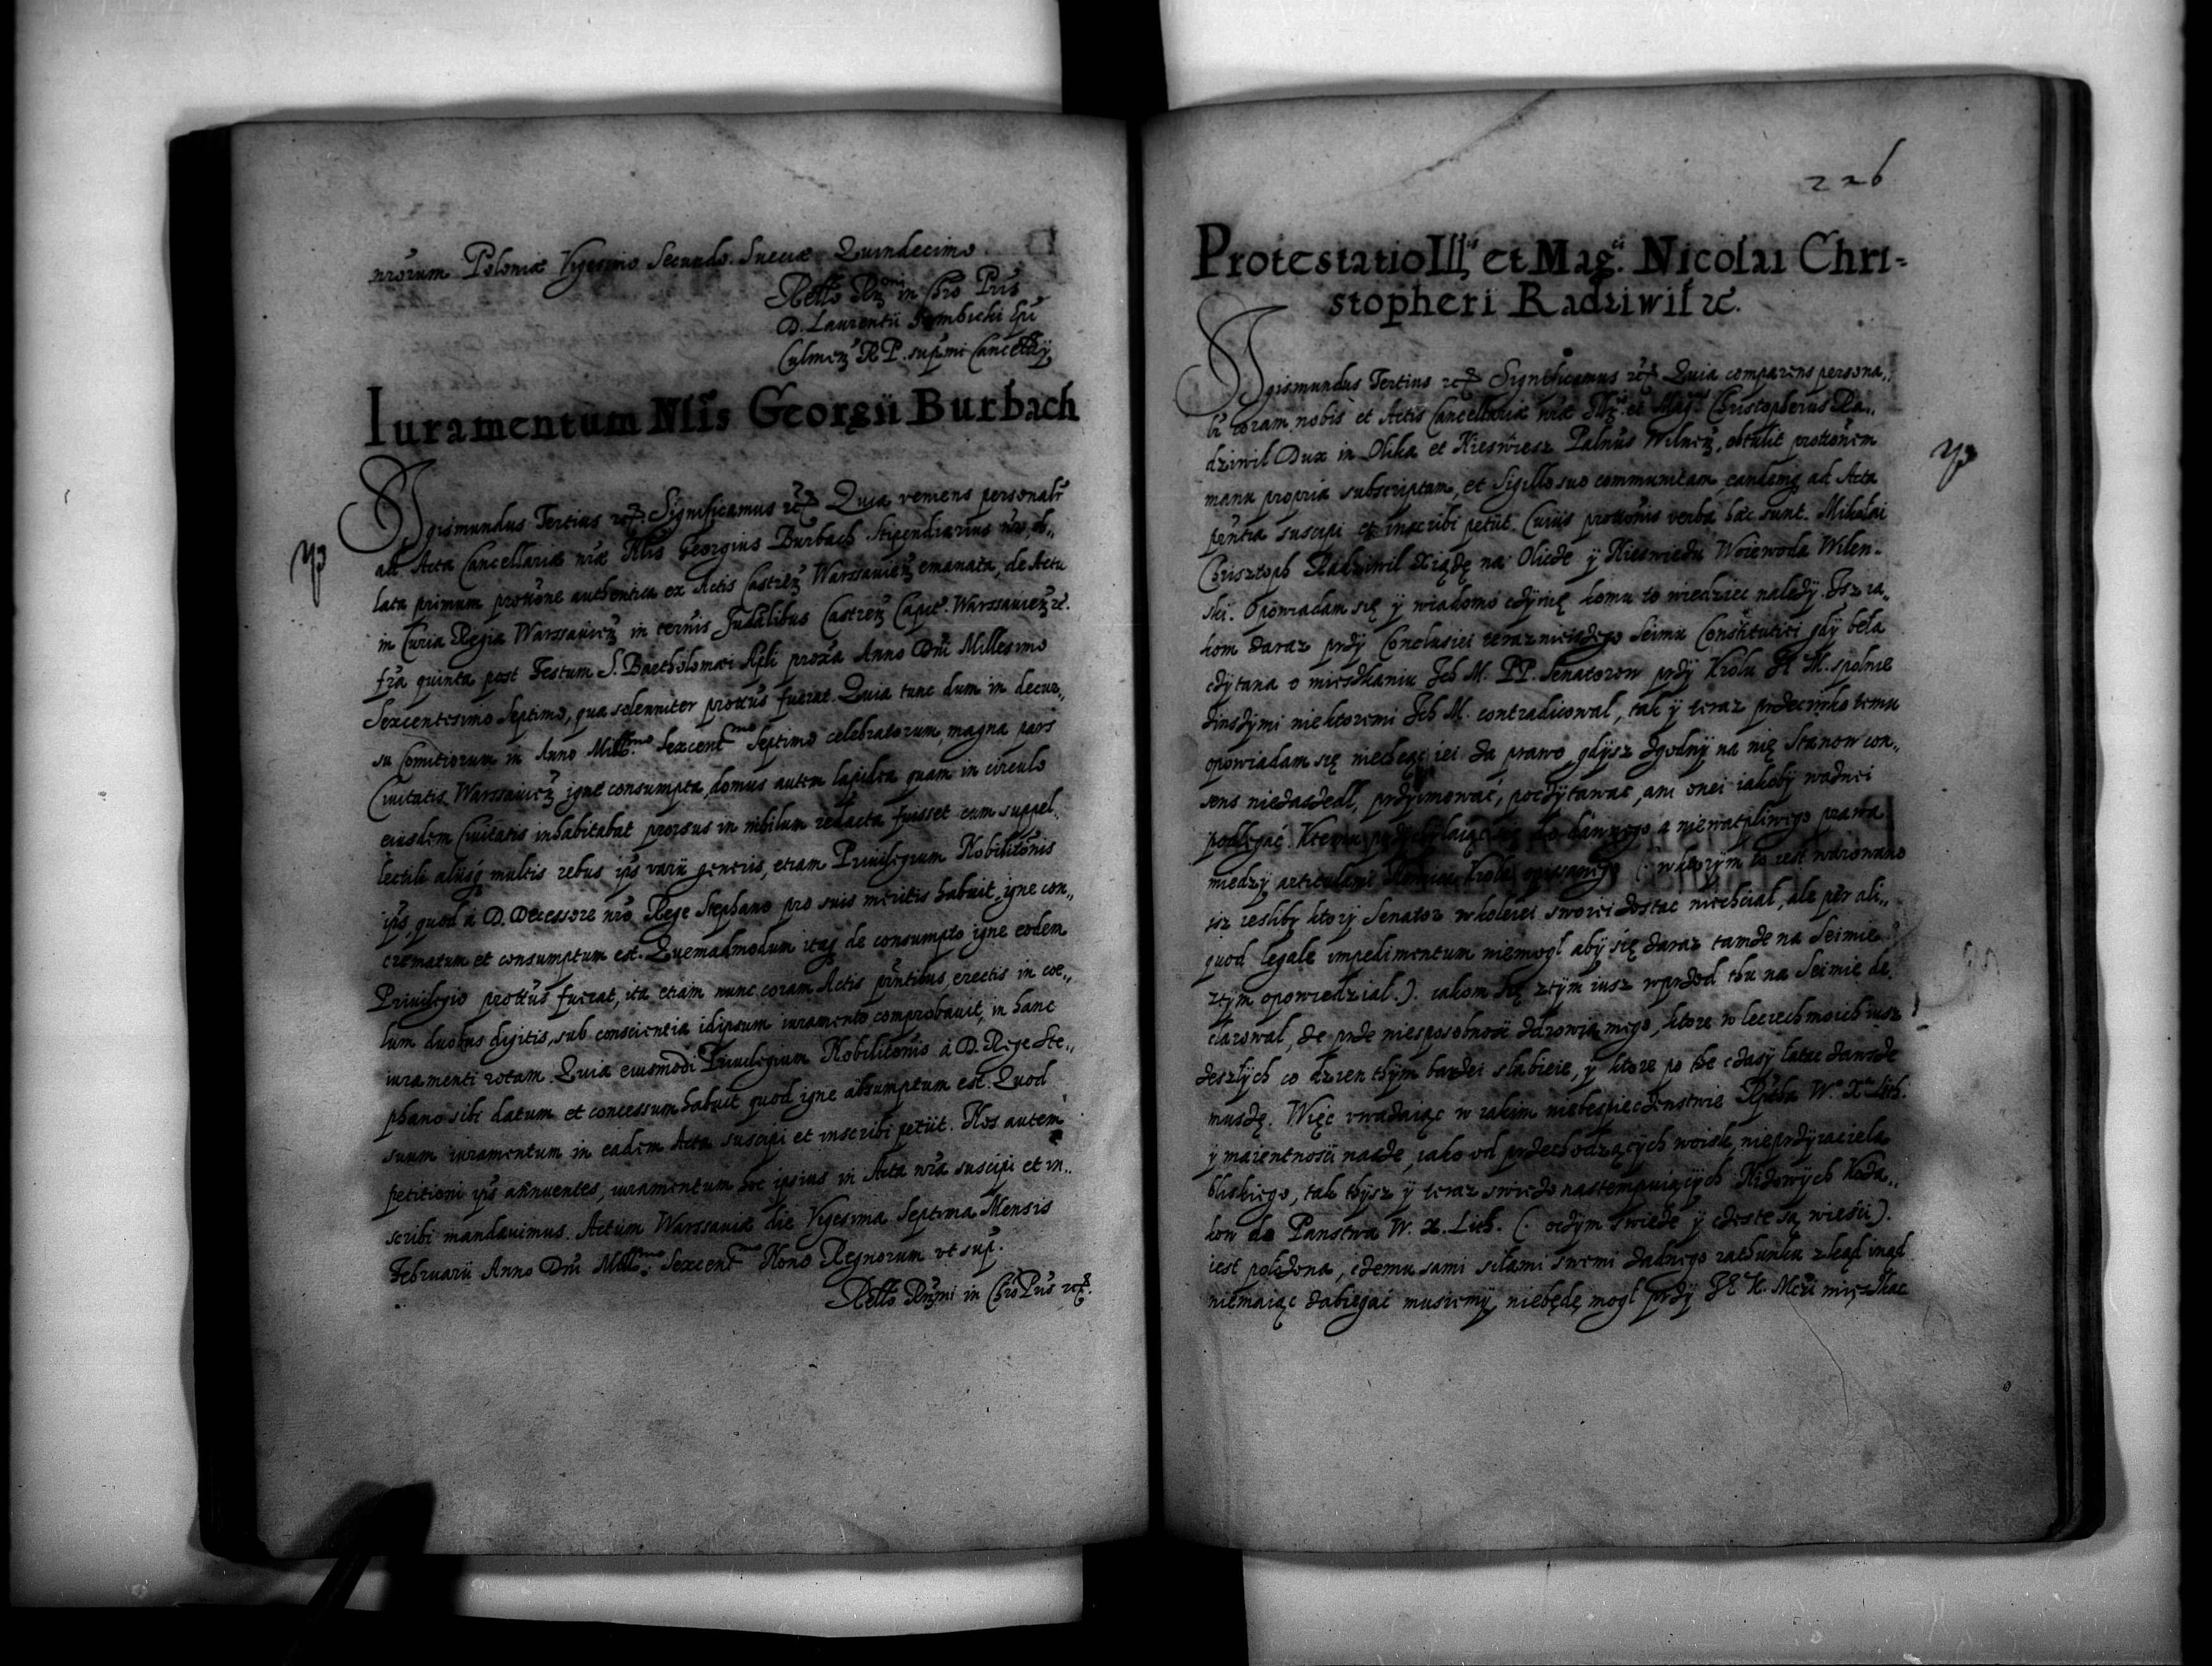 nrorum Poloniæ Vigesimo Secundo. Sueciæ Quindecimo.
Rełło Rz̃ in Chro Pris
D. Laurentii Gembicki Epi
Culmen̄ RP. supmi Cancellӳ
Iuramentum Nłis Georgii Burbach
Sigismundus Tertius etc. Significamus etc. Quia veniens personalr
ad Acta Cancellariæ nræ Nłis Georgius Burbach Stipendiarius nr, ob„
lata primum prottone authentica ex Actis Castren̄ Warssavien̄ emanata, de Actu
in Curia Regia Warssavien̄ in ternis Judalibus Castren̄ Capit. Warssavien̄ etc.
fra quinta post Festum S. Bartholomæi Apli proxa Anno Dni Millesimo
Sexcentesimo Septimo, qua solenniter prottus fuerat. Quia tunc dum in decur„
su Comitiorum in Anno Mill:mo Sexcentmo Septimo celebratorum, magna pars
Civitatis Warssavien̄ igne consumpta, domus autem lapidea quam in circulo
eiusdem Civitatis inhabitabat prorsus in nihilum redacta fuisset cum suppel„
lectili aliisq multis rebus ips varii generis, etiam Privilegium Nobilitonis
ips, quod à D. Decessore nro Rege Stephano pro suis meritis habuit, igne con„
crematum et consumptum est. Quemadmodum itaq de consumpto igne eodem
Privilegio prottus fuerat, ita etiam nunc coram Actis pntibus, erectis in coe„
lum duobus digitis, sub conscientia idipsum iuramento comprobavit, in hanc
iuramenti rotam. Quia eiusmodi Privilegium Nobilitonis à D. Rege Ste„
phano sibi datum et concessum habuit quod igne absumptum est. Quod
suum iuramentum in eadem Acta suscipi et inscribi petiit. Nos autem
petitioni ips annuentes, iuramentum hoc ipsius in Acta nra suscipi et in„
scribi mandavimus. Actum Warssaviæ die Vigesima Septima Mensis
Februarii Anno Dni Mill:mo Sexcentmo Nono Regnorum ut sup.
Rełło Rz̃mi in Chro Pris etc.
226
Protestatio Ill. et Mag. Nicolai Chri-
stopheri Radziwił etc.
Sigismundus Tertius etc. Significamus etc. Quia comparens persona„
lr coram nobis et Actis Cancellariæ nræ Illr. et Mag. Christopherus Ra„
dziwil Dux in Olika et Nieswiesz Palnus Wilnen̄, obtulit prottonem
manu propria subscriptam, et Sigillo suo communitam, eandemq ad Acta
pntia suscipi et inscribi petiit. Cuius prottonis verba hæc sunt. Mikołai
Chrisztoph Radziwil Xiążę na Olicze ӱ Nieswiezu Woiewoda Wilen„
ski. Opowiadam się ӱ wiadomo czӱnię komu to wiedziec należӱ. Isz ia„
kom zaraz przӱ Conclusiei terazniejszego Seimu Constitutiei gdӱ bela
czӱtana o mieszkaniu Ich M. PP. Senatorow przӱ Krolu Je M. spolnie
zinszӱmi niektoremi Ich M. contradicowal, tak ӱ teraz przeciwko temu
opowiadam się niechcąc iei za prawo, gdӱsz zgodnӱ na nię Stanow con„
sens niezaszedl, przӱimowac, poczӱtawac, ani onei iakobӱ wazniei
podlegać. Ktemu przӱchӱlaiąc się do dawnego a niewatpliwego prawa
miedzӱ articulami Krola opisanego (: w ktorӱm to iest warowano
isz iesliby ktorӱ Senator w koleiei swoiei zostac niechcial, ale per ali„
quod legale impedimentum niemogl abӱ się zaraz tamze na Seimie
ztӱm opowiedzial.). iakom się ztӱm iusz wprzod thu na Seimie de„
clarowal, ze prze niesposobnosc zdrowia mego, ktore w leciech moich iusz
zeszlӱch co dzien thӱm bardziei słabieie, ӱ ktore po the czasӱ latac zawsze
muszę. Więc uwazaiąc w iakim niebespieczenstwie Rptba W. X. Lith.
ӱ maientnosci nasze, iako od przechodzącӱch woisk, nieprzӱiaciela
bliskiego, tak thӱsz ӱ teraz swiezo nastempuiącӱch Nizowӱch Koza„
kow do Panstwa W. X. Lith. (: oczӱm swieze ӱ czeste są wiesci).
iest polozona, czemu sami silami swemi zadnego rathunku zkąd inąd
niemaiąc zabiegac musiemӱ, niebędę mogl przӱ JE K. Mci mięszkac